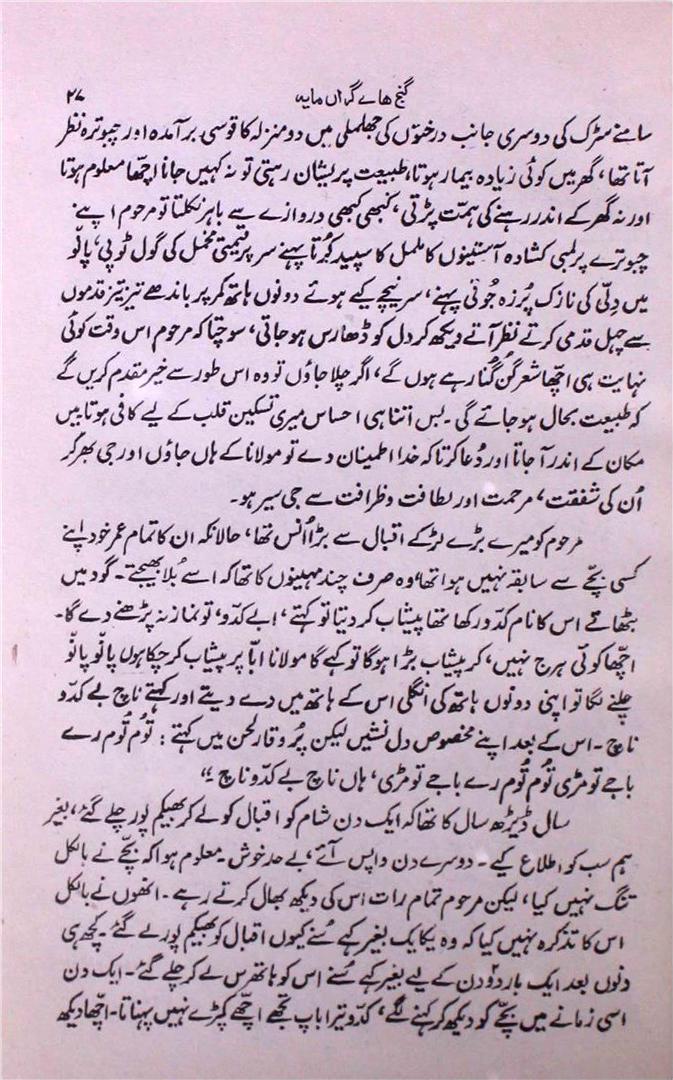 گنج ہائے گراں مایہ
۲۷
سامنے سڑک کی دوسری جانب درختوں کی جھلملی میں دو منزلہ کا قوسی برآمدہ اور چبوترہ نظر
آتا تھا، گھر میں کوئی زیادہ بیمار ہوتا، طبیعت پریشان رہتی تو نہ کہیں جانا اچھا معلوم ہوتا
اور نہ گھر کے اندر رہنے کی ہمت پڑتی، کبھی کبھی دروازے سے باہر نکلتا تو مرحوم اپنے
چبوترے پر لمبی کشادہ آستینوں کا ململ کا سپید کُرتا پہنے سر پر قیمتی مخمل کی گول ٹوپی، پانّو
میں دِلّی کی نازک پُرزہ جُوتی پہنے، سر نیچے کیے ہوئے دونوں ہاتھ کمر پر باندھے تیز تیز قدموں
سے چہل قدمی کرتے نظر آتے دیکھ کر دل کو ڈھارس ہو جاتی، سوچتا کہ مرحوم اس وقت کوئی
نہایت ہی اچھا شعر گُن گُنا رہے ہوں گے، اگر چلا جاؤں تو وہ اس طور سے خیر مقدم کریں گے
کہ طبیعت بحال ہو جائے گی۔ بس اتنا ہی احساس میری تسکین قلب کے لیے کافی ہوتا میں
مکان کے اندر آجاتا اور دُعا کرتا کہ خدا اطمینان دے تو مولانا کے ہاں جاؤں اور جی بھر کر
اُن کی شفقت، مرحمت اور لطافت و ظرافت سے جی سیر ہو۔
مرحوم کو میرے بڑے لڑکے اقبال سے بڑا اُنس تھا، حالانکہ ان کا تمام عمر خود اپنے
کسی بچّے سے سابقہ نہیں ہوا تھا، وہ صرف چند مہینوں کا تھا کہ اسے بُلا بھیجتے۔ گود میں
بٹھاتے اس کا نام کدّو رکھا تھا پیشاب کر دیتا تو کہتے، ابے کدّو، تو نماز نہ پڑھنے دے گا۔
اچھا کوئی ہرج نہیں، کر پیشاب بڑا ہوگا تو کہے گا مولانا ابّا پر پیشاب کر چکا ہوں پانّو پانّو
چلنے لگا تو اپنی دونوں ہاتھ کی انگلی اس کے ہاتھ میں دے دیتے اور کہتے ناچ بے کدّو
ناچ۔ اس کے بعد اپنے مخصوص دل نشیں لیکن پُر وقار لحن میں کہتے: تُوم تُوم رے
باجے تو مڑی تُوم تُوم رے باجے تو مڑی، ہاں ناچ بے کدّو ناچ۔"
سال ڈیڑھ سال کا تھا کہ ایک دن شام کو اقبال کو لے کر بھیکم پور چلے گئے، بغیر
ہم سب کو اطلاع کیے۔ دوسرے دن واپس آئے، بے حد خوش۔ معلوم ہوا کہ بچّے نے بالکل
تنگ نہیں کیا، لیکن مرحوم تمام رات اس کی دیکھ بھال کرتے رہے۔ انھوں نے بالکل
اس کا تذکرہ نہیں کیا کہ وہ یکایک بغیر کہے سُنے کیوں اقبال کو بھیکم پور لے گئے۔ کچھ ہی
دنوں بعد ایک بار دو دن کے لیے بغیر کہے سُنے اس کو ہاتھرس لے کر چلے گئے۔ ایک دن
اسی زمانے میں بچّے کو دیکھ کر کہنے لگے، کدّو تیرا باپ تجھے اچھے کپڑے نہیں پہناتا۔ اچھا دیکھ